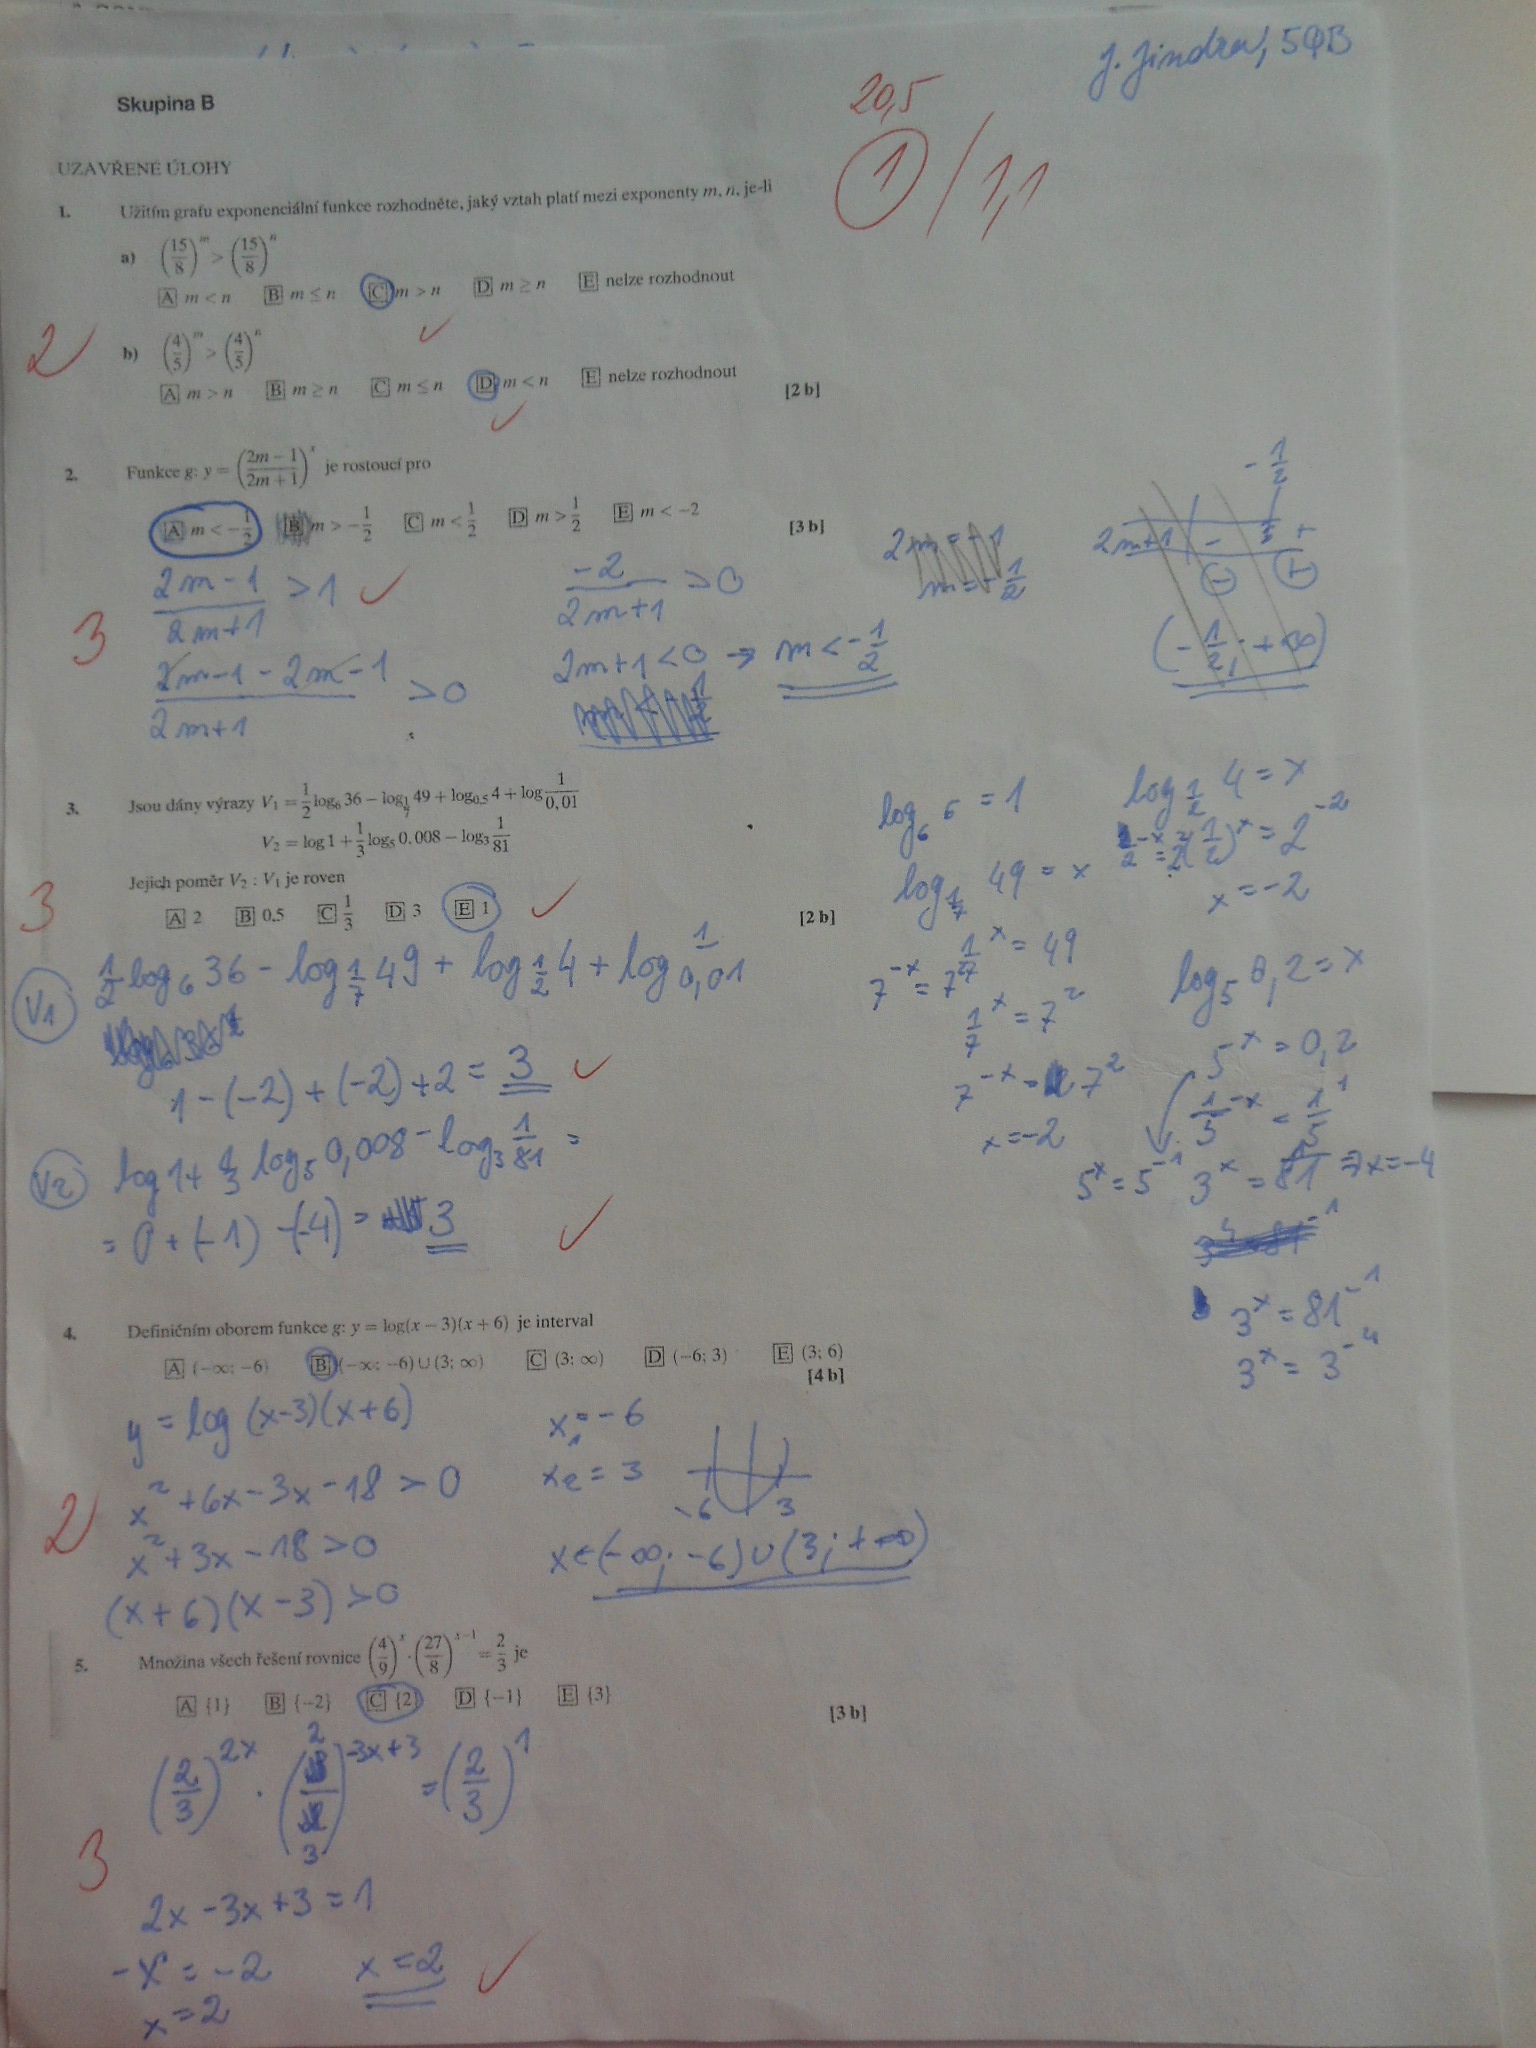 J. Jindra, 5QB
Skupina B
20,5
1 / 1,1
UZAVŘENÉ ÚLOHY
1. Užitím grafu exponenciální funkce rozhodněte, jaký vztah platí mezi exponenty m, n, je-li
a) (15/8)^m > (15/8)^n
A m < n B m ≤ n C m > n D m ≥ n E nelze rozhodnout
2
b) (4/5)^m > (4/5)^n
A m > n B m ≥ n C m ≤ n D m < n E nelze rozhodnout
[2 b]
2. Funkce g: y = ((2m − 1)/(2m + 1))^x je rostoucí pro
A m < −1/2 B m > −1/2 C m < 1/2 D m > 1/2 E m < −2
[3 b]
(2m−1)/(2m+1) > 1
3
(2m−1−2m−1)/(2m+1) > 0
−2/(2m+1) > 0
2m+1 < 0 → m < −1/2
2m = −1
m = −1/2
−1/2
2m+1 − +
− +
(−1/2; +∞)
3. Jsou dány výrazy V1 = 1/2 log6 36 − log1/7 49 + log0.5 4 + log 1/0,01
V2 = log 1 + 1/3 log5 0.008 − log3 1/81
Jejich poměr V2 : V1 je roven
3
A 2 B 0.5 C 1/3 D 3 E 1
[2 b]
V1 1/2 log6 36 − log1/7 49 + log1/2 4 + log 1/0,01
1 − (−2) + (−2) + 2 = 3
V2 log 1 + 1/3 log5 0,008 − log3 1/81 =
= 0 + (−1) −(−4) = 3
log6 6 = 1
log1/7 49 = x
1/7^x = 49
7^−x = 7^2
1/7^x = 7^2
7^−x = 7^2
x = −2
log1/2 4 = x
(1/2)^x = 2^−2
x = −2
log5 0,2 = x
5^x = 0,2
1/5^−x = 1/5^1
5^x = 5^−1
3^x = 1/81 ⇒ x = −4
3^x = 81^−1
3^x = 3^−4
4. Definičním oborem funkce g: y = log(x − 3)(x + 6) je interval
A (−∞; −6) B (−∞; −6) ∪ (3; ∞) C (3; ∞) D (−6; 3) E (3; 6)
[4 b]
y = log (x−3)(x+6)
x^2 + 6x − 3x − 18 > 0
2
x^2 + 3x − 18 > 0
(x+6)(x−3) > 0
x1 = −6
x2 = 3
−6 3
x ∈ (−∞; −6) ∪ (3; +∞)
5. Množina všech řešení rovnice (4/9)^x · (27/8)^x−1 = 2/3 je
A {1} B {−2} C {2} D {−1} E {3}
[3 b]
(2/3)^2x · (2/3)^−3x+3 = (2/3)^1
3
2x − 3x + 3 = 1
−x = −2
x = 2
x = 2